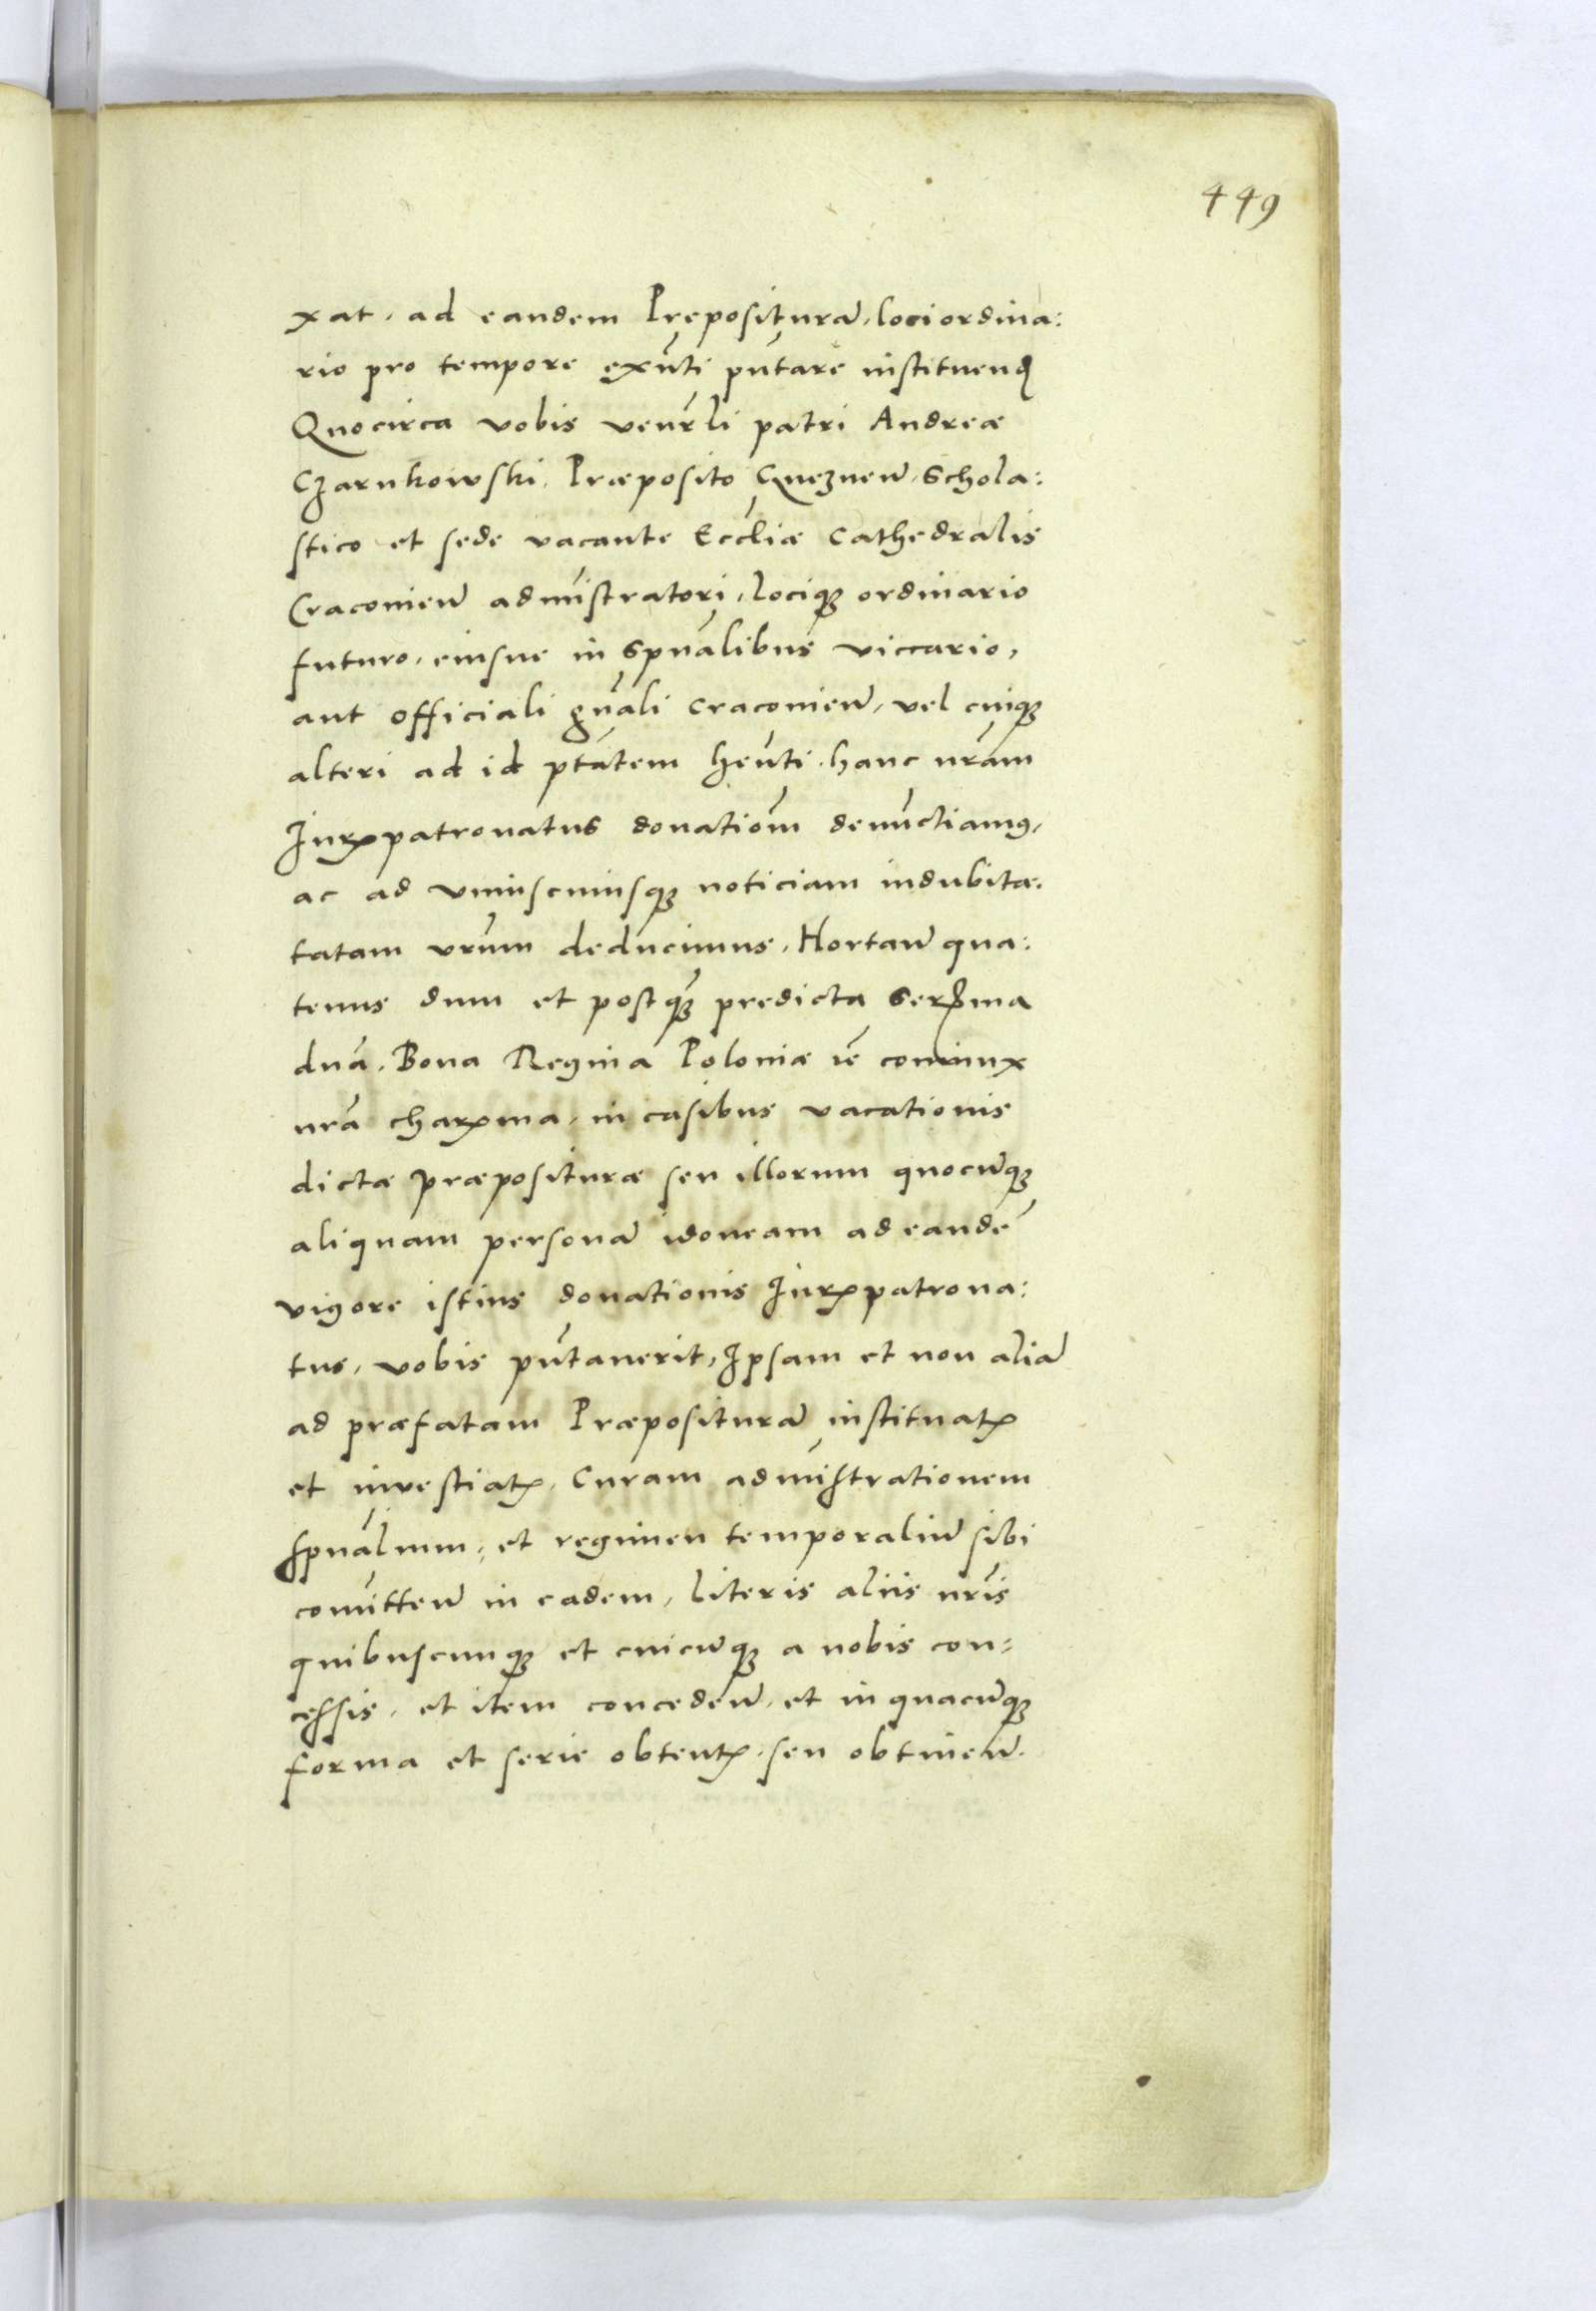 449
xat, ad eandem Prepositurā, loci ordina:
rio pro tempore exn̄ti pn̄tare instituend̄
Quocirca vobis venr̄li patri Andreæ
Czarnkowski, Præposito Gneznen̄, Schola:
stico et sede vacante Eccl̄iæ Cathedralis
Cracovien̄ admīstratori, lociqꝫ ordinario
futuro, eiusve in spūalibus viccario,
aut officiali gn̄ali Cracovien̄, vel cuiqꝫ
alteri ad id ptātem hen̄ti, hanc nr̄am
Iurꝭpatronatus donatiom̄ denūctiamꝰ,
ac ad vniuscuiusqꝫ noticiam indubita:
tatam vr̄um deducimus, Hortan̄ qua:
tenus dum et postqꝫ predicta Serꝭma
dn̄a, Bona Regina Poloniæ ꝛc̄ coniunx
nr̄a charꝭma, in casibus vacationis
dictæ præposituræ seu illorum quocūqꝫ
aliquam personā idoneam ad eandē
vigore istius donationis Iurꝭpatrona:
tus, vobis pn̄tauerit, Ipsam et non aliā
ad præfatam Præpositurā instituatꝭ
et investiatꝭ, Curam admīstrationem
spūalium, et regimen temporaliū sibi
comītten̄ in eadem, literis aliis nr̄is
quibuscunqꝫ et cuicūqꝫ a nobis con=
cessis, et item conceden̄, et in quacūqꝫ
forma et serie obtentꝭ, seu obtinen̄.